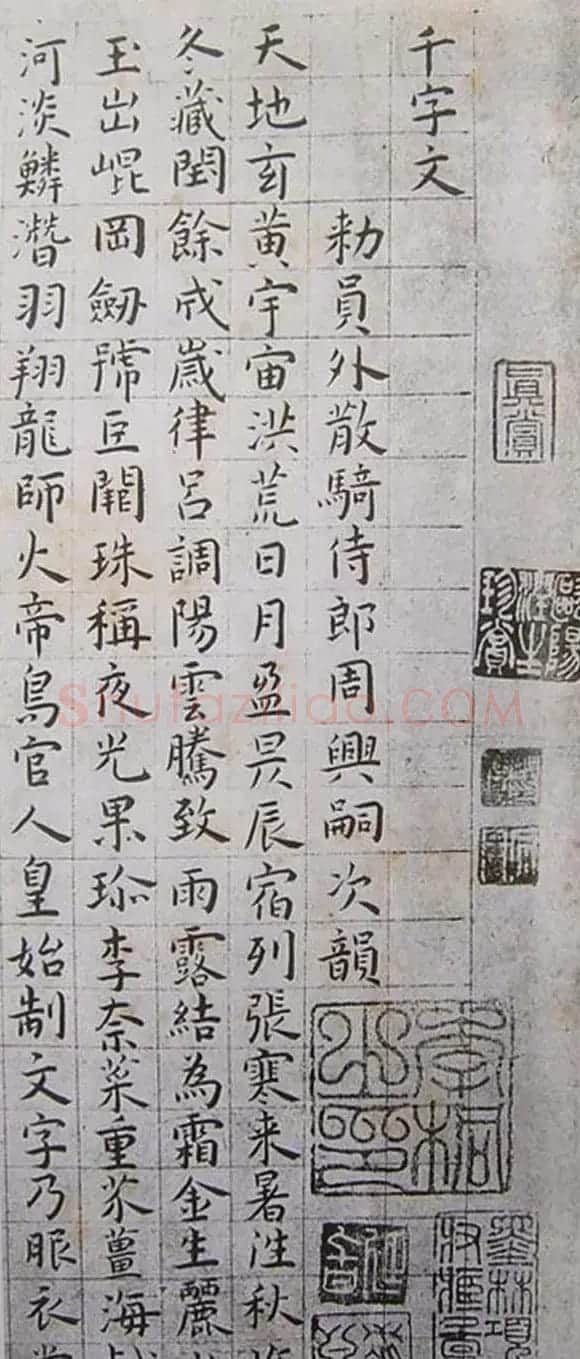 千字文
勑員外散騎侍郎周興嗣次韻
天地玄黃宇宙洪荒日月盈昃辰宿列張寒来暑往秋
冬藏閏餘成歲律呂調陽雲騰致雨露結為霜金生麗
玉出崐岡劒號巨闕珠稱夜光果珎李柰菜重芥薑海
河淡鱗潛羽翔龍師火帝鳥官人皇始制文字乃服衣
眞賞
Shufaziliao.COM